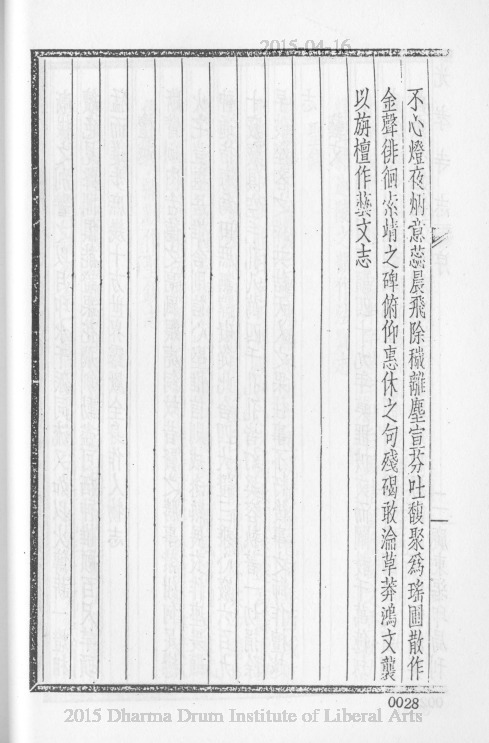 2015-04-16
不心燈夜炳意蕊晨飛除穢離塵宣芬吐馥聚為瑤圃散作
金聲徘徊索靖之碑俯仰惠休之句殘碣敢淪草莽鴻文襲
以旃檀作藝文志
0028
2015 Dharma Drum Institute of Liberal Arts